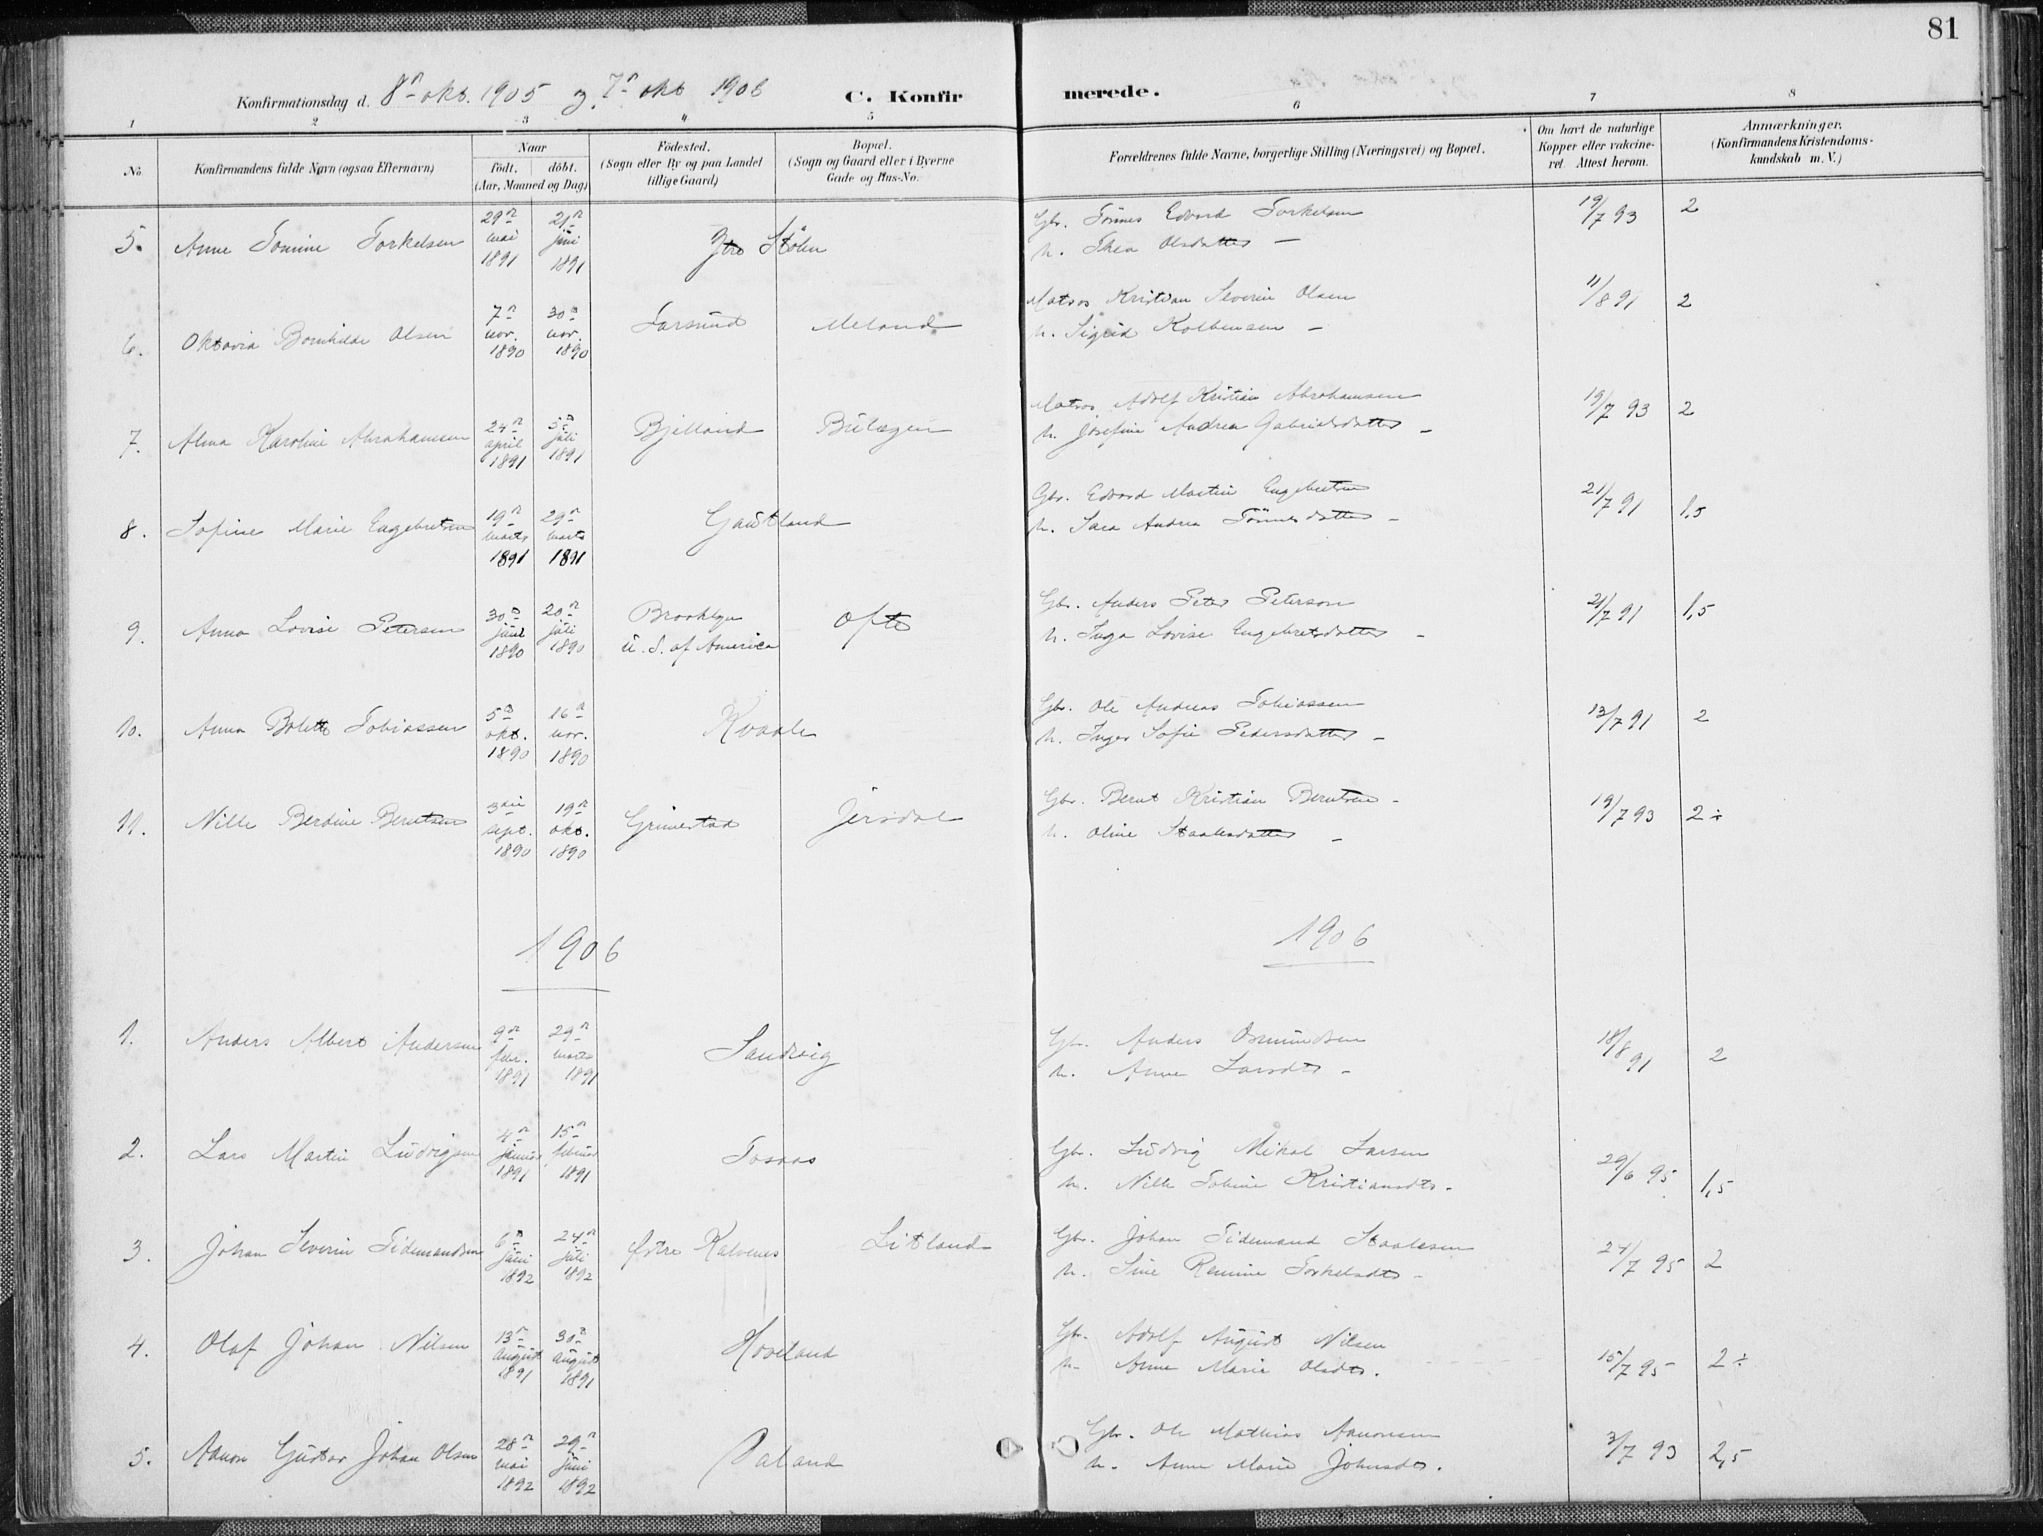 81
Konfirmationsdag d. 8n okt. 1905 og 7n okt 1906 C. Konfirmerede.
1 2 3 4 5 6 7 8
No
Konfirmandens fulde Navn (ogsaa Efternavn)
Naar
födt. döbt.
(Aar, Maaned og Dag)
Födested.
(Sogn eller By og paa Landet
tillige Gaard)
Bopæl.
(Sogn og Gaard eller i Byerne
Gade og Hus-No.
Forældrenes fulde Navne, borgerlige Stilling (Næringsvei) og Bopæl.
Om havt de naturlige
Kopper eller vakcine-
ret. Attest herom.
Anmærkninger.
(Konfirmandens Kristendoms-
kundskab m. V.)
5. Anne Tomine Torkelsen 29n mai 1891 21n juni 1891 Ytre Stölen
Gbr. Tönnes Edvard Torkelsen 19/7 93 2
h. Thea Olsdatter –
6. Oktavia Bornhilde Olsen 7n nov. 1890 30n nov. 1890 Farsund Meland
Matros Kristian Severin Olsen 11/8 91 2
h. Sigrid Kolbensen –
7. Alma Karoline Abrahamsen 24n april 1891 5n juli 1891 Bjelland Bülægen
Matros Adolf Kristian Abrahamsen 19/7 93 2
h. Josefine Andrea Gabrielsdatter –
8. Sofine Marie Engebretsen 19n marts 1891 29n marts 1891 Gautland
Gbr. Edvard Martin Engebretsen 21/7 91 1,5
h. Sara Andrea Tönnesdatter –
9. Anna Lovise Petersen 30n juni 1890 20n juli 1890 Brooklyn Ofte
U. S. of America
Gbr. Anders Peter Peterson 21/7 91 1,5
h. Inga Lovise Engebretsdatter –
10. Anna Bolette Tobiassen 5n okt. 1890 16n nov. 1890 Kvaale
Gbr. Ole Andreas Tobiassen 13/7 91 2
h. Inger Sofie Pedersdatter –
11. Nille Berdine Berntsen 3die sept. 1890 19n okt. 1890 Grimestad Jersdal
Gbr. Bernt Kristian Berntsen – 19/7 93 2÷
h. Oline Staalesdatter –
1906 1906
1. Anders Albert Andersen 9n febr. 1891 29n marts 1891 Sandvig
Gbr. Anders Osmundsen 18/8 91 2
h. Anne Larsdtr –
2. Lars Martin Ludvigsen 4n januar 1891 15n februar 1891 Tosaas
Gbr. Ludvig Mikal Larsen 29/6 95 1,5
h. Nille Tobine Kristiansdtr.
3. Johan Severin Tidemandsen 6n juni 1892 24n juli 1892 Østre Kalvenes Litland
Gbr. Johan Tidemand Staalesen 24/7 95 2
h. Sine Remine Torkelsdtr –
4. Olaf Johan Nilsen 13n august 1891 30n august 1891 Hoveland
Gbr. Adolf August Nilsen 15/7 95 2÷
h. Anne Marie Olsdtr.
5. Aanon Gustav Johan Olsen 28n mai 1892 29n juni 1892 Paland
Gbr. Ole Mathias Aanonsen 3/7 93 2,5
h. Anne Marie Johnsdtr.